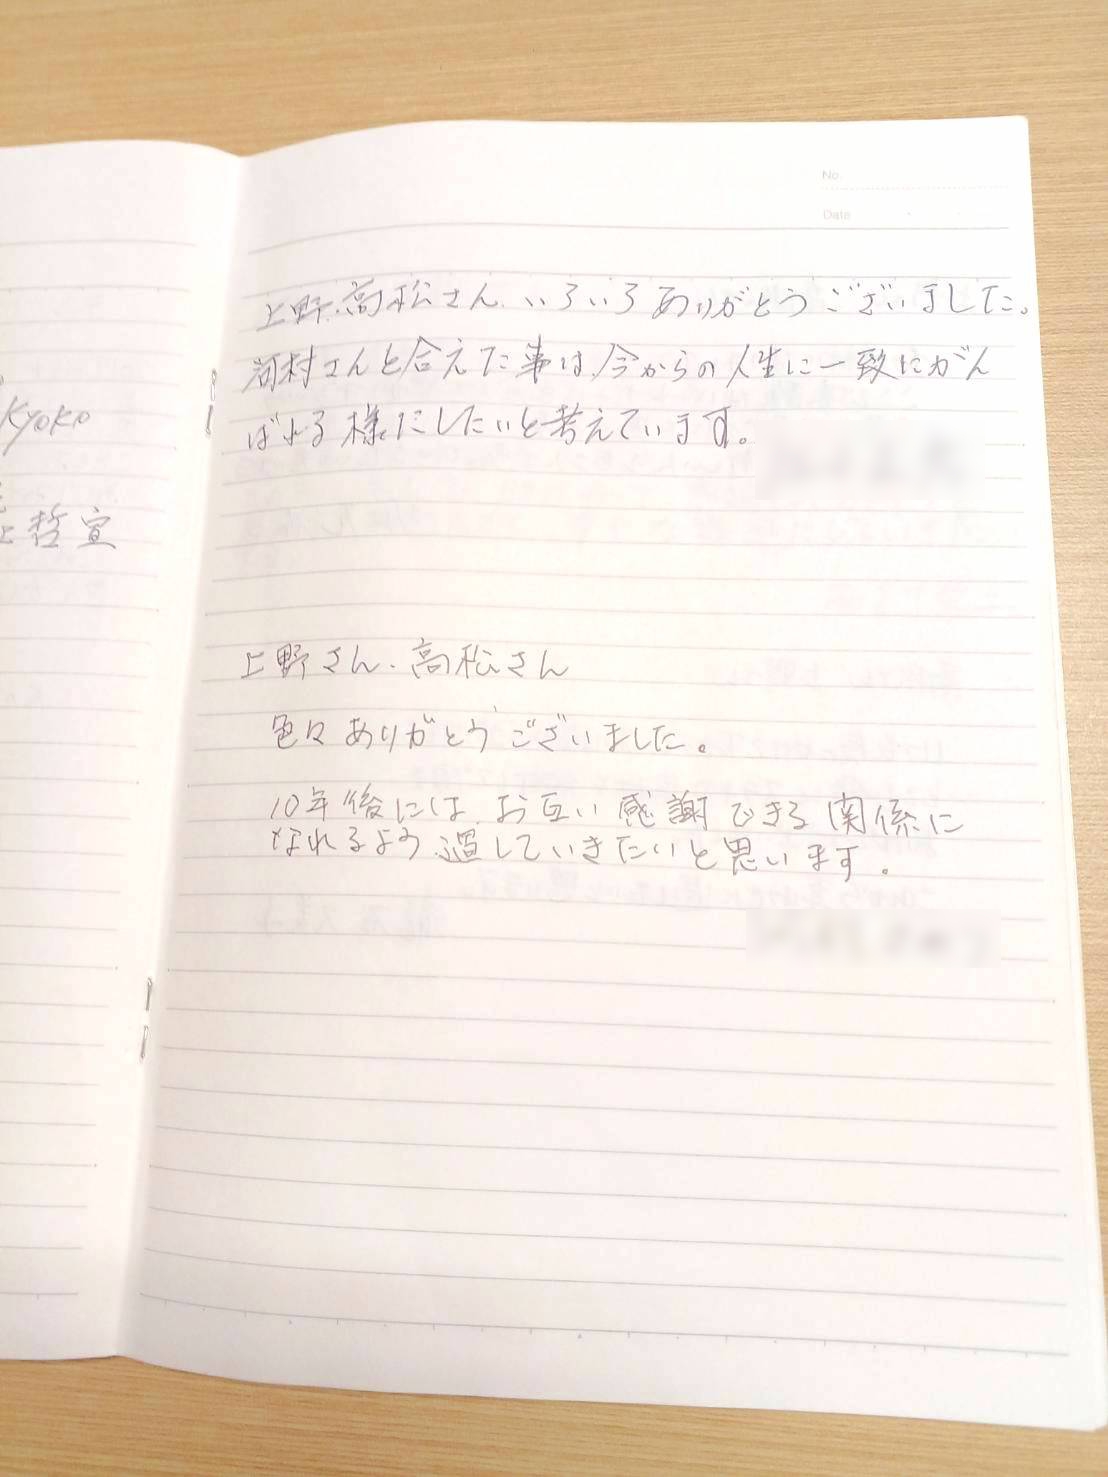 Kyoko
哲宣
No.
Date
上野.高松さん.いろいろありがとうございました。
河村さんと合えた事は、今からの人生に一致にがん
ばれる様にしたいと考えています。
上野さん.高松さん
色々ありがとうございました。
10年後には、お互い感謝できる関係に
なれるよう過していきたいと思います。